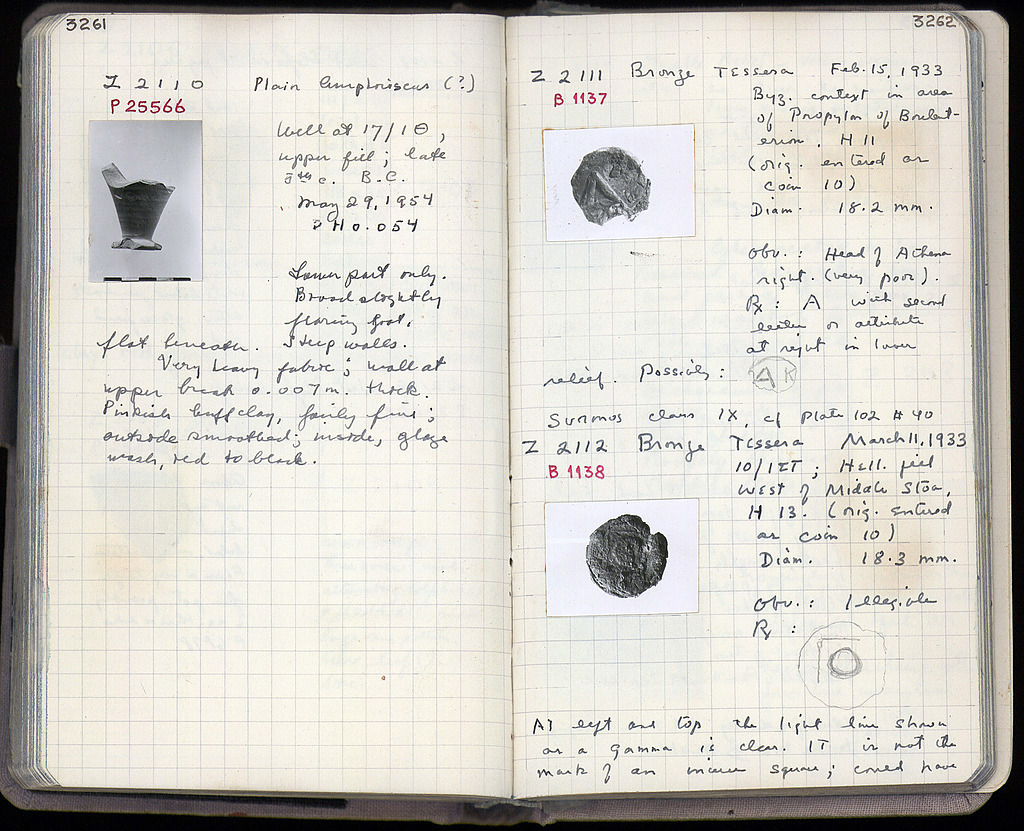 3261
Z 2110 Plain Amphoriscus (?)
P 25566
Well at 17/ΙΘ,
upper fill; late
5th c. B.C.
May 29, 1954
PH 0.054
Lower part only.
Broad slightly
flaring foot,
flat beneath. Steep walls.
Very heavy fabric; wall at
upper break 0.007 m. thick.
Pinkish buff clay, fairly fine;
outside smoothed; inside, glaze
wash, red to black.
3262
Z 2111 Bronze Tessera Feb. 15, 1933
B 1137
Byz. context in area
of Propylon of Bouleut-
erion, H 11
(orig. entered as
coin 10)
Diam. 18.2 mm.
Obv.: Head of Athena
right. (very poor).
Rx: A with second
letter or attribute
at right in lower
relief. Possibly: AK
Svoronos class IX, cf Plate 102 # 40
Z 2112 Bronze Tessera March 11, 1933
B 1138
10/ΙΣΤ; Hell. fill
West of Middle Stoa,
H 13. (orig. entered
as coin 10)
Diam. 18.3 mm.
Obv.: Illegible
Rx:
At left and top the light line shown
as a gamma is clear. It is not the
mark of an incuse square; could have